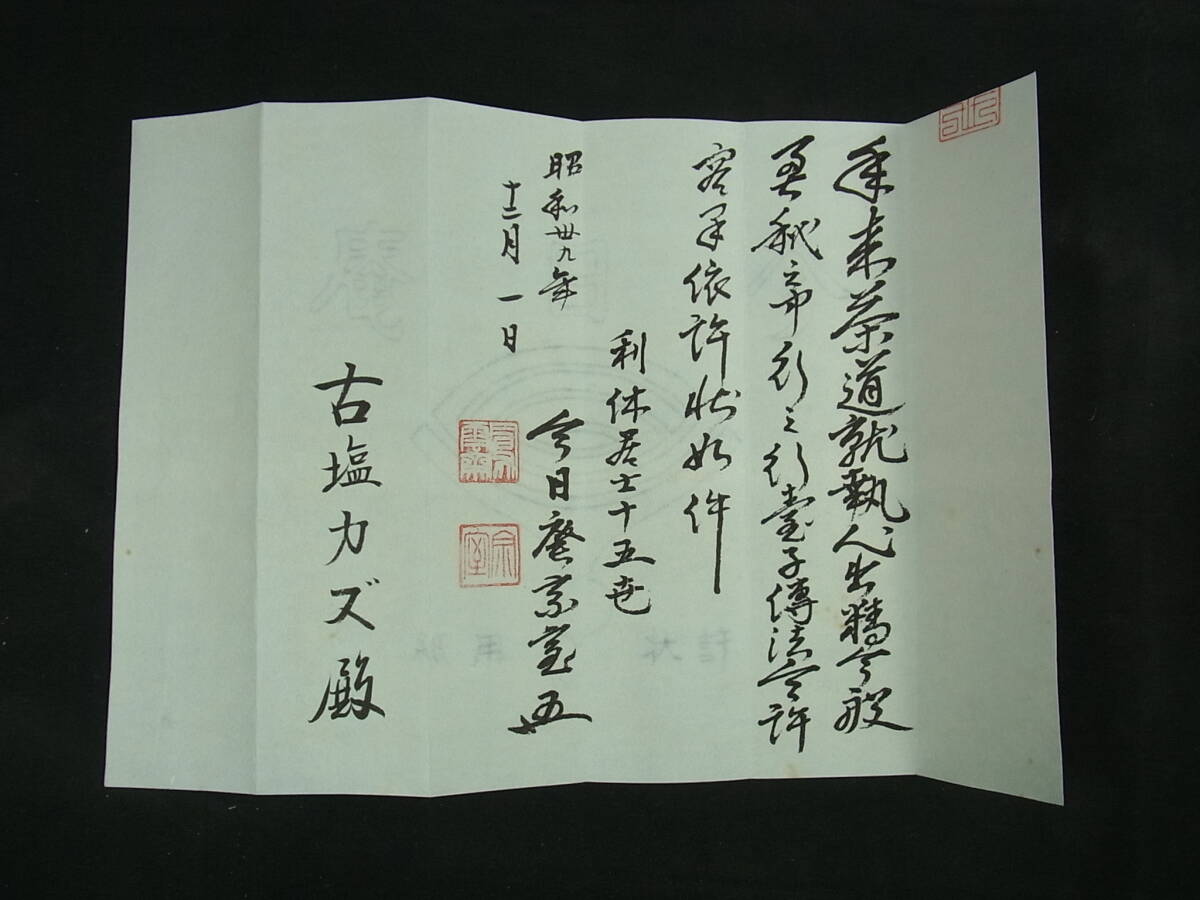 年来茶道就執心出精今般
奥秘行之行臺子傳法令許
容畢依許状如件
利休居士十五世
今日庵宗室
昭和卅九年
十二月一日
宗室
古塩カズ殿